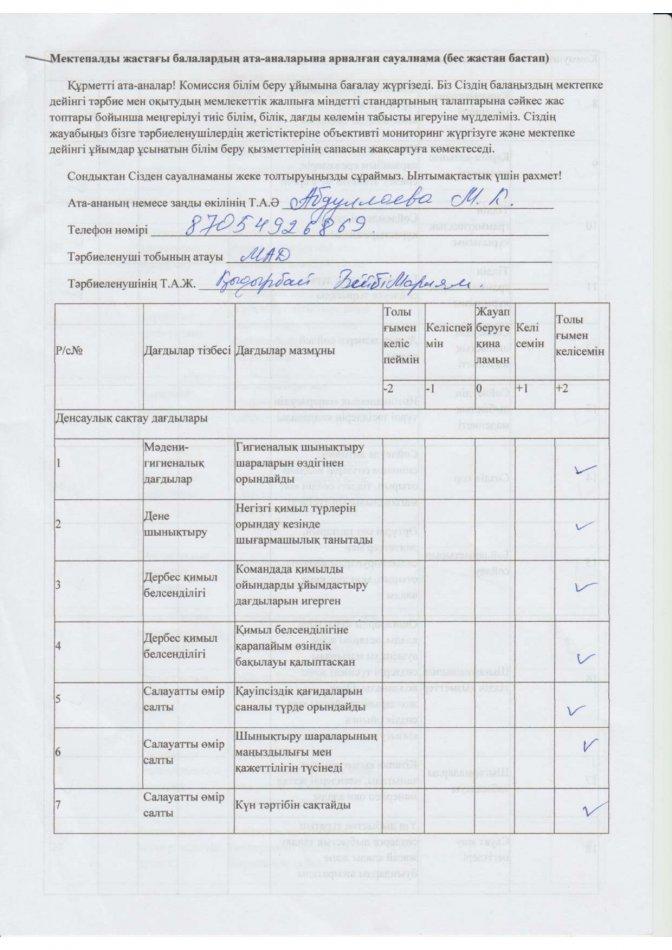 Мектепалды жастағы балалардың ата-аналарына арналған сауалнама (бес жастан бастап)
Құрметті ата-аналар! Комиссия білім беру ұйымына бағалау жүргізеді. Біз Сіздің балаңыздың мектепке
дейінгі тәрбие мен оқытудың мемлекеттік жалпыға міндетті стандартының талаптарына сәйкес жас
топтары бойынша меңгерілуі тиіс білім, білік, дағды көлемін табысты игеруіне мүдделіміз. Сіздің
жауабыңыз бізге тәрбиеленушілердің жетістіктеріне объективті мониторинг жүргізуге және мектепке
дейінгі ұйымдар ұсынатын білім беру қызметтерінің сапасын жақсартуға көмектеседі.
Сондықтан Сізден сауалнаманы жеке толтыруыңызды сұраймыз. Ынтымақтастық үшін рахмет!
Ата-ананың немесе заңды өкілінің Т.А.Ә Абдуллаева М.
Телефон нөмірі 87054926869.
Тәрбиеленуші тобының атауы МАД
Тәрбиеленушінің Т.А.Ж. Қыдырбай БибіМариям.
Р/с№ Дағдылар тізбесі Дағдылар мазмұны
Толы
ғымен
келіс
пеймін
Келіспей
мін
Жауап
беруге
қина
ламын
Келі
семін
Толы
ғымен
келісемін
-2 -1 0 +1 +2
Денсаулық сақтау дағдылары
1
Мәдени-
гигиеналық
дағдылар
Гигиеналық шынықтыру
шараларын өздігінен
орындайды
2
Дене
шынықтыру
Негізгі қимыл түрлерін
орындау кезінде
шығармашылық танытады
3
Дербес қимыл
белсенділігі
Командада қимылды
ойындарды ұйымдастыру
дағдыларын игерген
4
Дербес қимыл
белсенділігі
Қимыл белсенділігіне
қарапайым өзіндік
бақылауы қалыптасқан
5
Салауатты өмір
салты
Қауіпсіздік қағидаларын
саналы түрде орындайды
6
Салауатты өмір
салты
Шынықтыру шараларының
маңыздылығы мен
қажеттілігін түсінеді
7
Салауатты өмір
салты
Күн тәртібін сақтайды